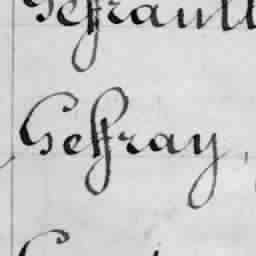 Geffrault
Geffray,